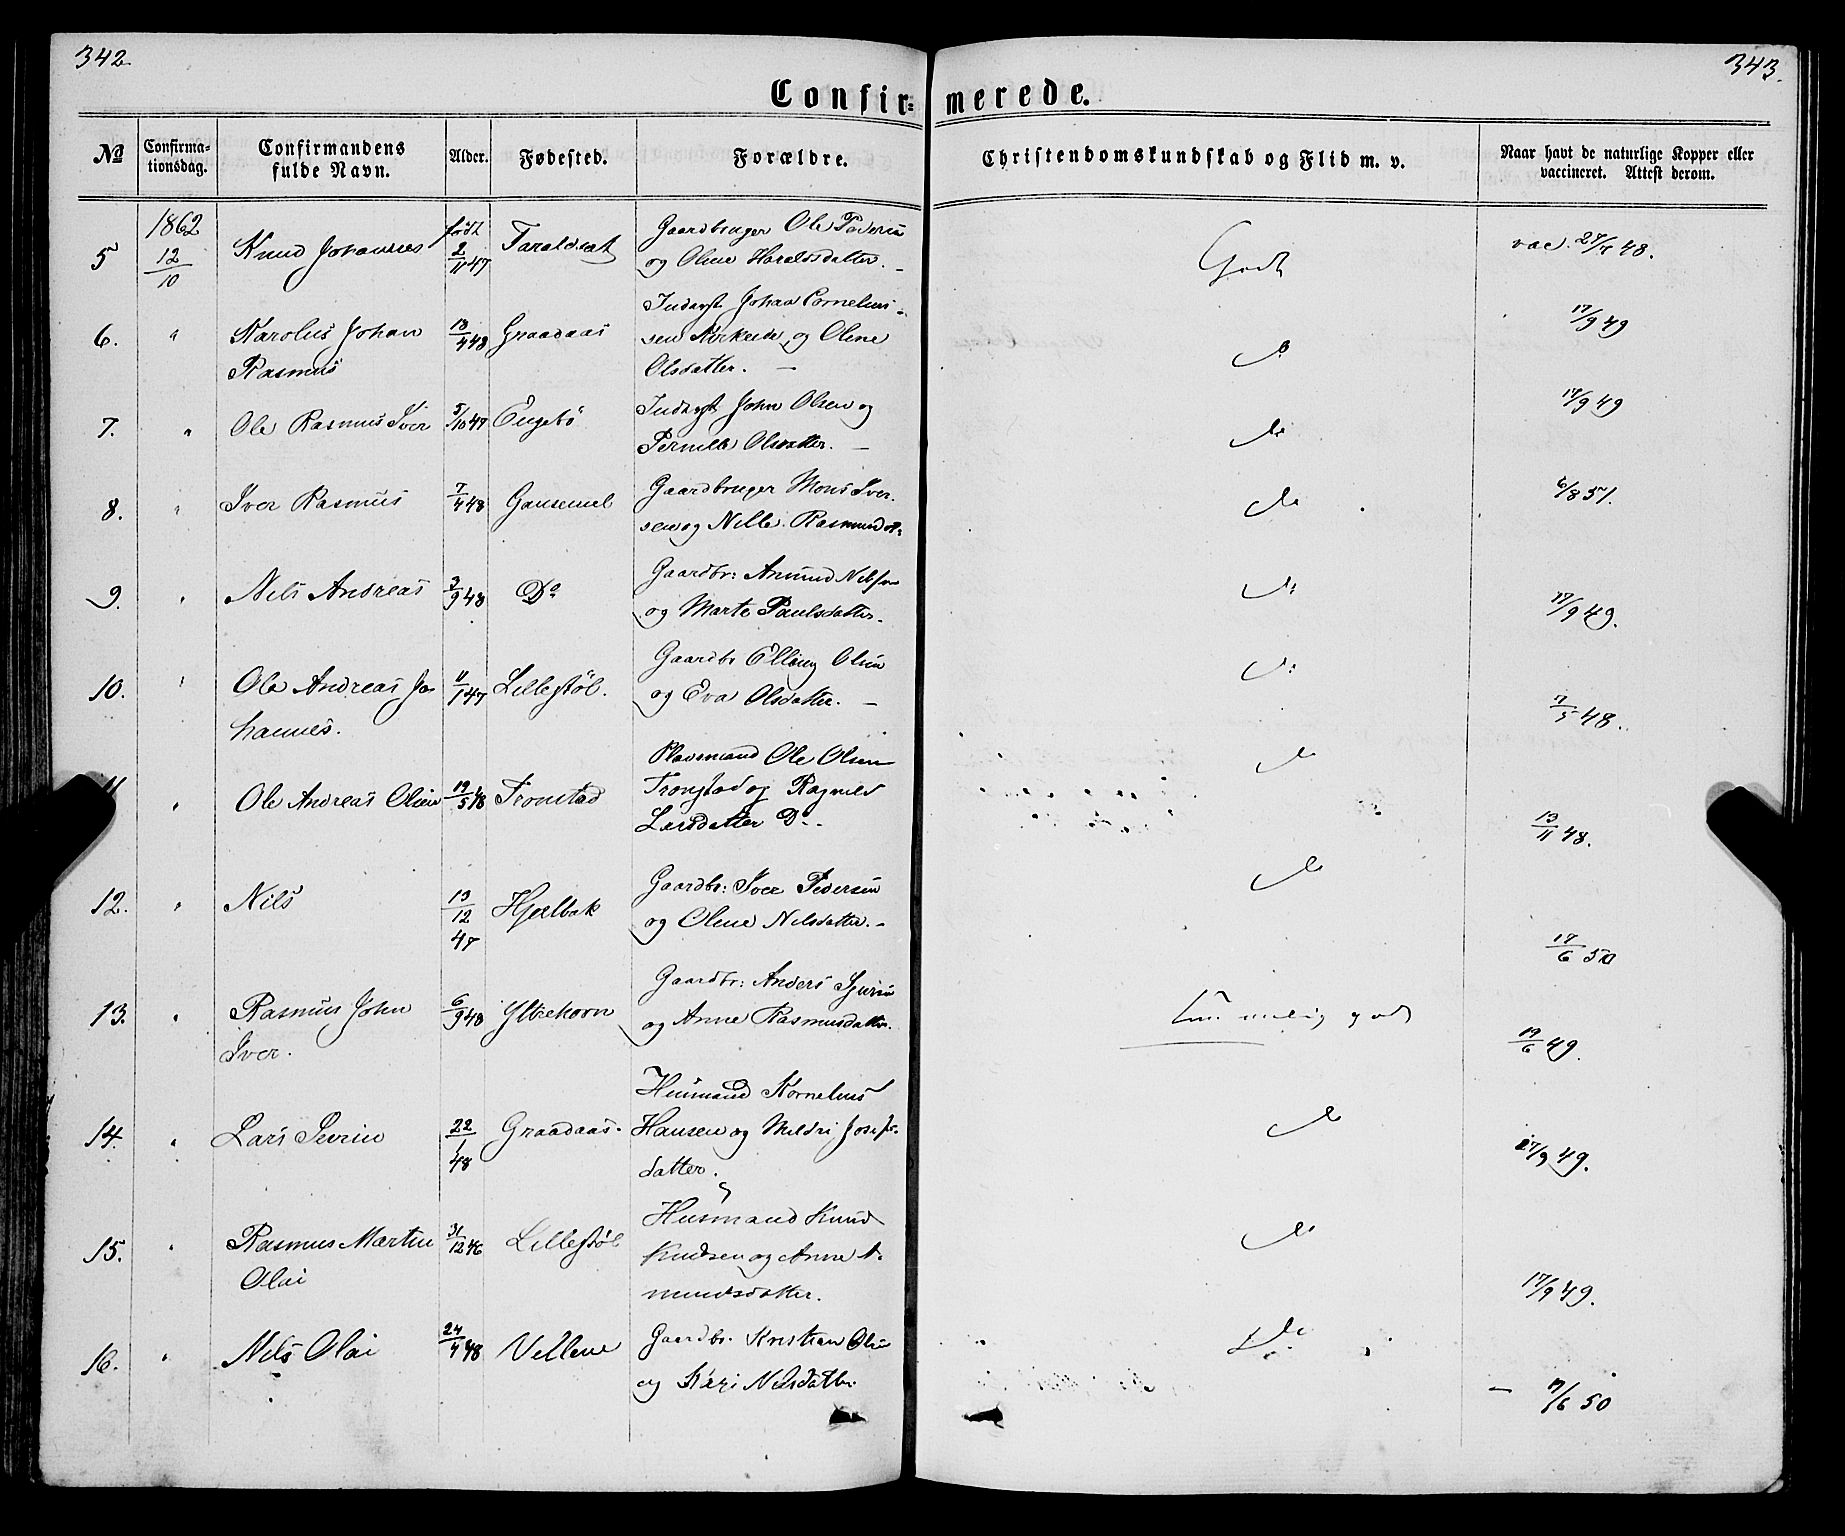 342.
343.
Confir= merede.
№ Confirma-tionsdag. Confirmandens fulde Navn. Alder. Fødested. Forældre. Christendomskundskab og Flid m. v. Naar havt de naturlige Kopper eller vaccineret. Attest derom.
1862 født Gaardbruger Ole Pedersen
5 12/10 Knud Johannes 2/11 47 Taraldsæt og Oline Haraldsdatter. Godt vac.
Inderst Johan Cornelius-
6. " Karolus Johan 18/4 48 Graadaas sen og Oline 17/9 49
Rasmus Olsdatter. — do
7. " Ole Rasmus Iver 5/10 47 Engebø Inderst John Olsen og do 17/9 49
Pernille Olsdatter. —
8. " Iver Rasmus 7/4 48 Gansemel Gaardbruger Mons Iver- do 6/8 51.
sen og Nille Rasmusd
9. " Nils Andreas 3/9 48 Do Gaardbr: Amund Nilsen do 17/9 49.
og Marte Paulsdatter.
10. " Ole Andreas Jo- 11/1 47 Lillestøl. Gaardbr Elling Olsen do 7/5 48.
hannes. og Eva Olsdatter. —
Pladsmand Ole Olsen do
11 " Ole Andreas Olein 19/5 48 Tronstad Tronstad og Ragnild 13/11 48.
Larsdatter Do.
12. " Nils 13/12 47 Hjelbak Gaardbr: Iver Pedersen do 17/6 50
og Oline Nilsdatter. -
Gaardbr: Anders Sjursen
13. " Rasmus John 6/9 48 Yttrehorn og Anne Rasmusdatter. godt 19/6 49.
Iver.
Husmand Kornelius
14. " Lars Severin 22/1 48 Graadaas. Hansen og Mildri Josefs- do 17/9 49.
datter.
Husmand Knud
15. " Rasmus Martin 31/12 46 Lillestøl Knudsen og Anne A- do 17/9 49.
Olai mundsdatter.
16. " Nils Olai 24/4 48 Vellene Gaardbr. Kristian Olsen do — 17/6 50
og Kari Nilsdatter